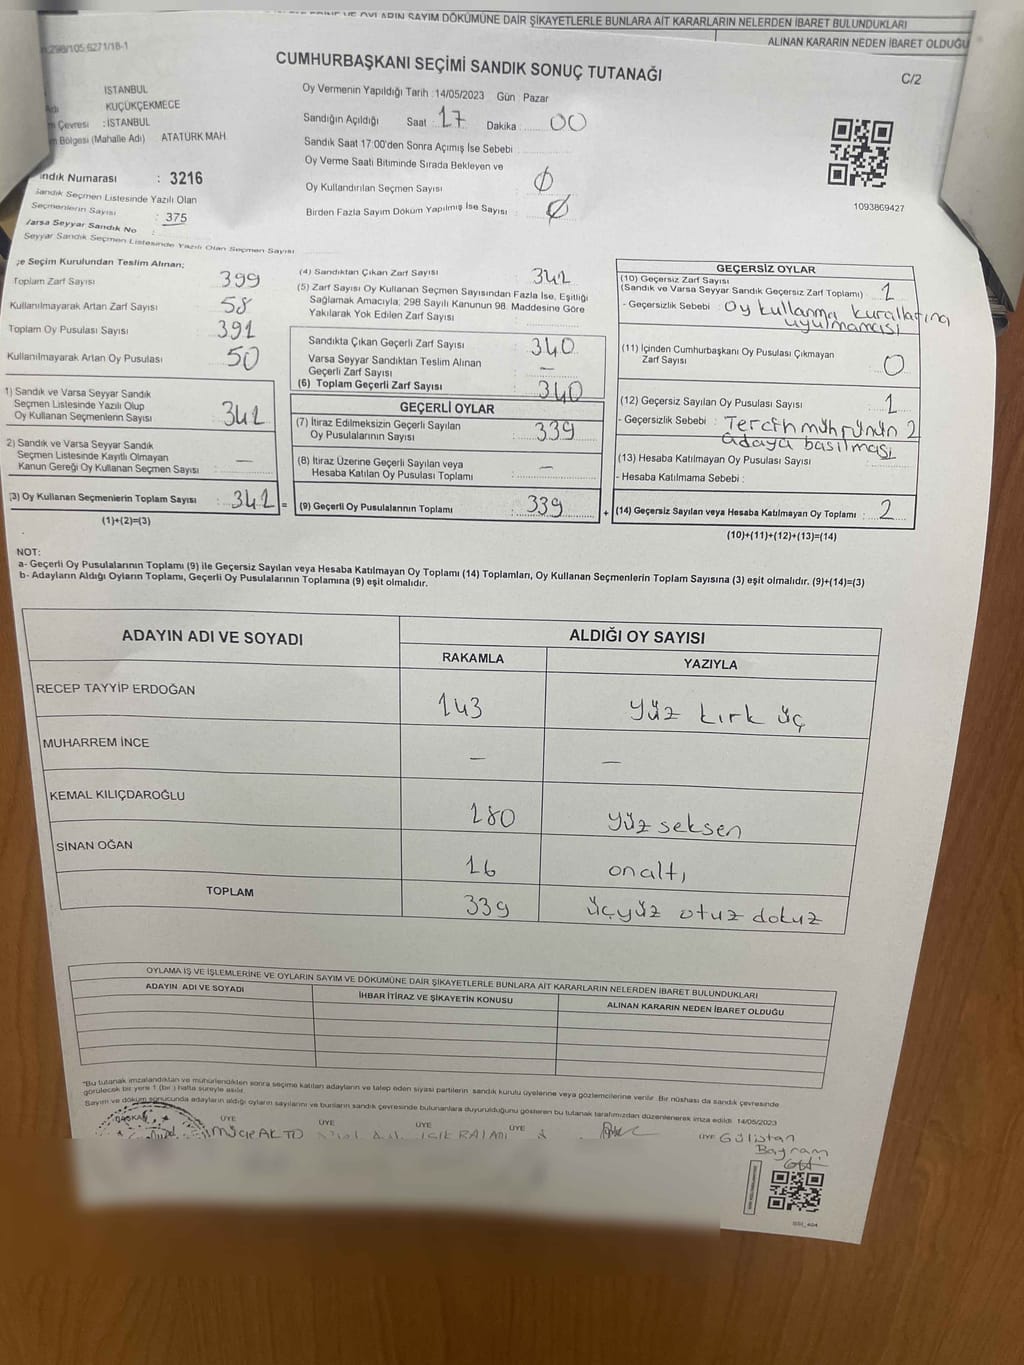 OYLARIN SAYIM DÖKÜMÜNE DAİR ŞİKAYETLERLE BUNLARA AİT KARARLARIN NELERDEN İBARET BULUNDUKLARI
ALINAN KARARIN NEDEN İBARET OLDUĞU
298/105.6271/18-1
CUMHURBAŞKANI SEÇİMİ SANDIK SONUÇ TUTANAĞI
C/2
İSTANBUL
KÜÇÜKÇEKMECE
Çevresi : İSTANBUL
Bölgesi (Mahalle Adı) ATATÜRK MAH.
Numarası : 3216
Sandık Seçmen Listesinde Yazılı Olan
Seçmenlerin Sayısı : 375
Varsa Seyyar Sandık No :
Seyyar Sandık Seçmen Listesinde Yazılı Olan Seçmen Sayısı
Oy Vermenin Yapıldığı Tarih : 14/05/2023 Gün : Pazar
Sandığın Açıldığı Saat 17 Dakika 00
Sandık Saat 17:00'den Sonra Açımış İse Sebebi
Oy Verme Saati Bitiminde Sırada Bekleyen ve
Oy Kullandırılan Seçmen Sayısı : 0
Birden Fazla Sayım Döküm Yapılmış İse Sayısı : 0
1093869427
Seçim Kurulundan Teslim Alınan;
Toplam Zarf Sayısı 399
Kullanılmayarak Artan Zarf Sayısı 58
Toplam Oy Pusulası Sayısı 391
Kullanılmayarak Artan Oy Pusulası 50
1) Sandık ve Varsa Seyyar Sandık
Seçmen Listesinde Yazılı Olup
Oy Kullanan Seçmenlerin Sayısı : 341
2) Sandık ve Varsa Seyyar Sandık
Seçmen Listesinde Kayıtlı Olmayan
Kanun Gereği Oy Kullanan Seçmen Sayısı : —
(3) Oy Kullanan Seçmenlerin Toplam Sayısı : 341 =
(1)+(2)=(3)
(4) Sandıktan Çıkan Zarf Sayısı : 341
(5) Zarf Sayısı Oy Kullanan Seçmen Sayısından Fazla İse, Eşitliği
Sağlamak Amacıyla, 298 Sayılı Kanunun 98. Maddesine Göre
Yakılarak Yok Edilen Zarf Sayısı :
Sandıkta Çıkan Geçerli Zarf Sayısı : 340
Varsa Seyyar Sandıktan Teslim Alınan
Geçerli Zarf Sayısı : —
(6) Toplam Geçerli Zarf Sayısı : 340
GEÇERLİ OYLAR
(7) İtiraz Edilmeksizin Geçerli Sayılan
Oy Pusulalarının Sayısı : 339
(8) İtiraz Üzerine Geçerli Sayılan veya
Hesaba Katılan Oy Pusulası Toplamı : —
(9) Geçerli Oy Pusulalarının Toplamı : 339 +
GEÇERSİZ OYLAR
(10) Geçersiz Zarf Sayısı
(Sandık ve Varsa Seyyar Sandık Geçersiz Zarf Toplamı) : 1
- Geçersizlik Sebebi : Oy kullanma kurallarına
uyulmaması
(11) İçinden Cumhurbaşkanı Oy Pusulası Çıkmayan
Zarf Sayısı : 0
(12) Geçersiz Sayılan Oy Pusulası Sayısı : 1
- Geçersizlik Sebebi : Tercih mührünün 2
adaya basılması
(13) Hesaba Katılmayan Oy Pusulası Sayısı :
- Hesaba Katılmama Sebebi :
(14) Geçersiz Sayılan veya Hesaba Katılmayan Oy Toplamı : 2
(10)+(11)+(12)+(13)=(14)
NOT:
a- Geçerli Oy Pusulalarının Toplamı (9) ile Geçersiz Sayılan veya Hesaba Katılmayan Oy Toplamı (14) Toplamları, Oy Kullanan Seçmenlerin Toplam Sayısına (3) eşit olmalıdır. (9)+(14)=(3)
b- Adayların Aldığı Oyların Toplamı, Geçerli Oy Pusulalarının Toplamına (9) eşit olmalıdır.
ADAYIN ADI VE SOYADI ALDIĞI OY SAYISI
RAKAMLA YAZIYLA
RECEP TAYYİP ERDOĞAN 143 yüz kırk üç
MUHARREM İNCE — —
KEMAL KILIÇDAROĞLU 180 yüz seksen
SİNAN OĞAN 16 onaltı
TOPLAM 339 üçyüz otuz dokuz
OYLAMA İŞ VE İŞLEMLERİNE VE OYLARIN SAYIM VE DÖKÜMÜNE DAİR ŞİKAYETLERLE BUNLARA AİT KARARLARIN NELERDEN İBARET BULUNDUKLARI
ADAYIN ADI VE SOYADI İHBAR İTİRAZ VE ŞİKAYETİN KONUSU ALINAN KARARIN NEDEN İBARET OLDUĞU
"Bu tutanak imzalandıktan ve mühürlendikten sonra seçime katılan adayların ve talep eden siyasi partilerin sandık kurulu üyelerine veya gözlemcilerine verilir. Bir nüshası da sandık çevresinde
görülecek bir yere 1 (bir) hafta süreyle asılır.
Sayım ve döküm sonucunda adayların aldığı oyların sayılarını ve bunların sandık çevresinde bulunanlara duyurulduğunu gösteren bu tutanak tarafımızdan düzenlenerek imza edildi. 14/05/2023
BAŞKAN ÜYE ÜYE ÜYE
ÜYE Gülistan
Bayram